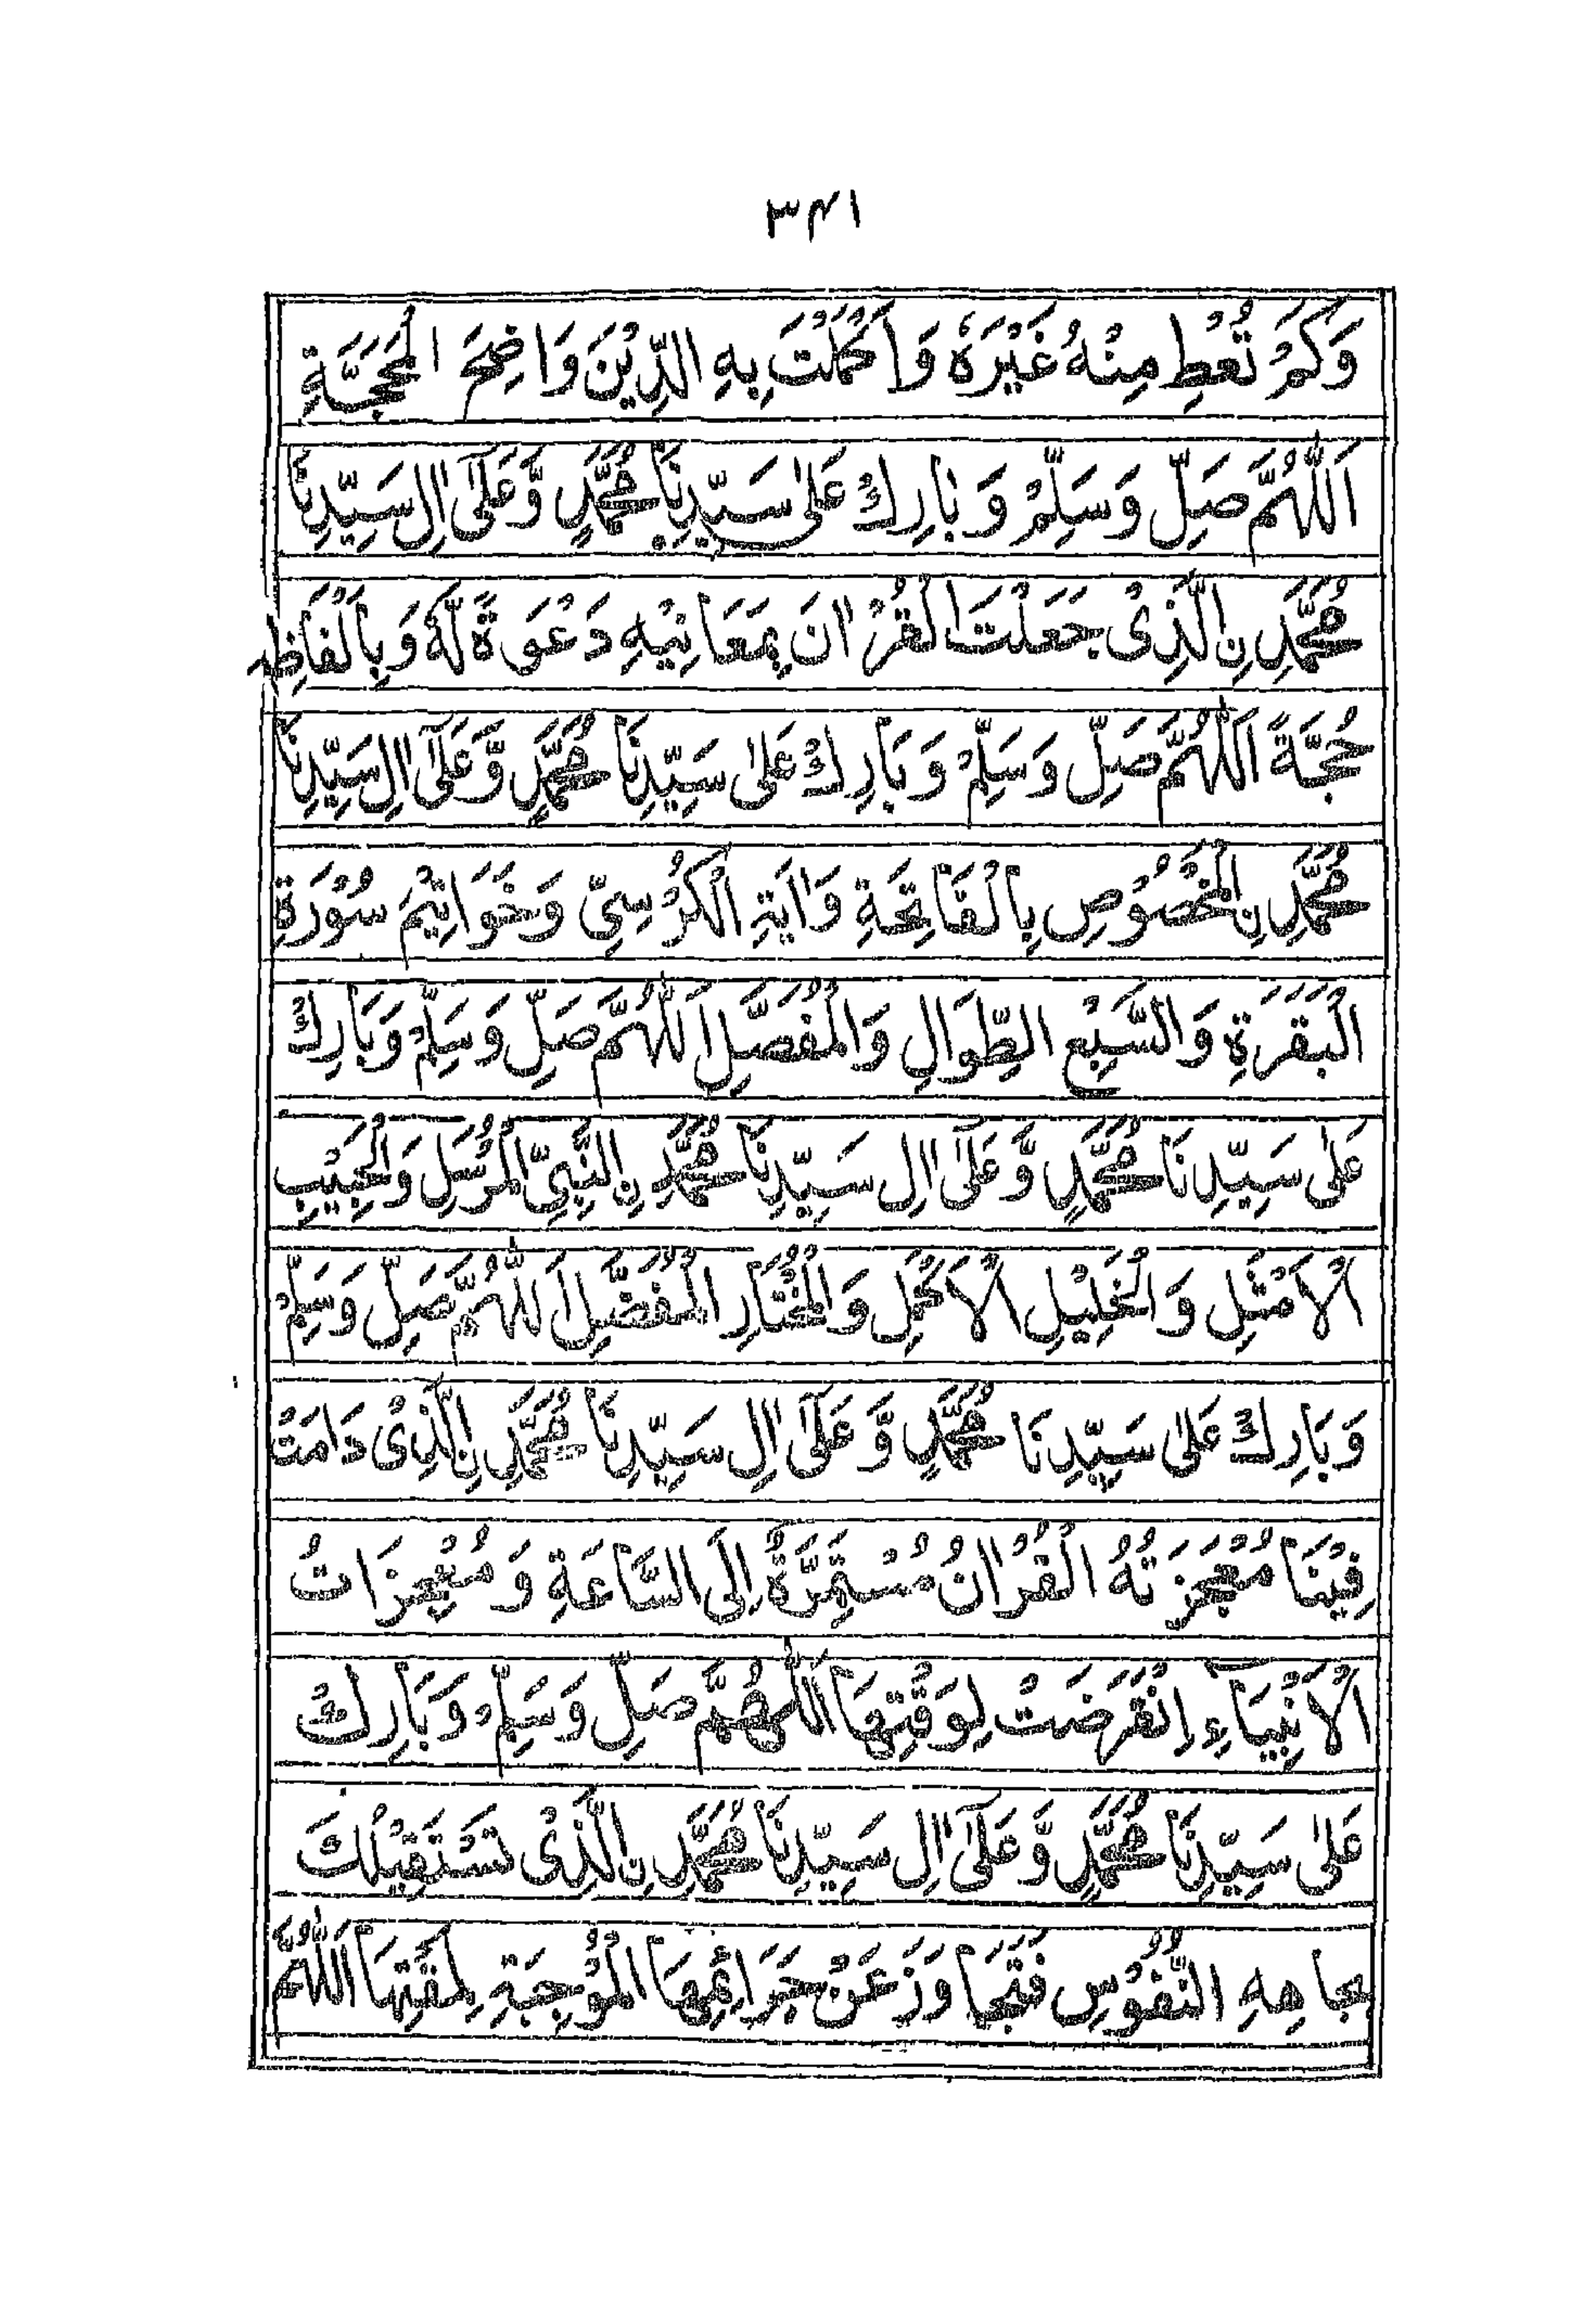 ۳۴۱
وَلَمْ تُعْطِ مِنْهُ غَيْرَهٗ وَاَكْمَلْتَ بِهِ الدِّيْنَ وَاضِحَ الْمَحَجَّةِ
اَللّٰهُمَّ صَلِّ وَسَلِّمْ وَبَارِكْ عَلٰى سَيِّدِنَا مُحَمَّدٍ وَّعَلٰٓى اٰلِ سَيِّدِنَا
مُحَمَّدِ نِ الَّذِىْ جَعَلْتَ الْقُرْاٰنَ بِمَعَانِيْهِ دَعْوَةً لَّهٗ وَبِاَلْفَاظِهٖ
حُجَّةً اَللّٰهُمَّ صَلِّ وَسَلِّمْ وَبَارِكْ عَلٰى سَيِّدِنَا مُحَمَّدٍ وَّعَلٰٓى اٰلِ سَيِّدِنَا
مُحَمَّدِ نِ الْمَخْصُوْصِ بِالْفَاتِحَةِ وَاٰيَةِ الْكُرْسِيِّ وَخَوَاتِيْمِ سُوْرَةِ
الْبَقَرَةِ وَالسَّبْعِ الطِّوَالِ وَالْمُفَصَّلِ اَللّٰهُمَّ صَلِّ وَسَلِّمْ وَبَارِكْ
عَلٰى سَيِّدِنَا مُحَمَّدٍ وَّعَلٰٓى اٰلِ سَيِّدِنَا مُحَمَّدِ نِ النَّبِيِّ الْمُرْسَلِ وَالْحَبِيْبِ
الْاَمْثَلِ وَالْخَلِيْلِ الْاَكْمَلِ وَالْمُخْتَارِ الْمُفَضَّلِ اَللّٰهُمَّ صَلِّ وَسَلِّمْ
وَبَارِكْ عَلٰى سَيِّدِنَا مُحَمَّدٍ وَّعَلٰٓى اٰلِ سَيِّدِنَا مُحَمَّدِ نِ الَّذِىْ دَامَتْ
فِيْنَا مُعْجِزَتُهُ الْقُرْاٰنُ مُسْتَمِرَّةٌ اِلَى السَّاعَةِ وَمُعْجِزَاتُ
الْاَنْبِيَآءِ اِنْقَرَضَتْ لِوَقْتِهَا اَللّٰهُمَّ صَلِّ وَسَلِّمْ وَبَارِكْ
عَلٰى سَيِّدِنَا مُحَمَّدٍ وَّعَلٰٓى اٰلِ سَيِّدِنَا مُحَمَّدِ نِ الَّذِىْ تَسْتَقِيْلُكَ
بِجَاهِهِ النُّفُوْسِ فَتَجَاوَزْ عَنْ جَرَائِمِهَا الْمُوْجِبَةِ لِمَقْتِهَا اَللّٰهُمَّ